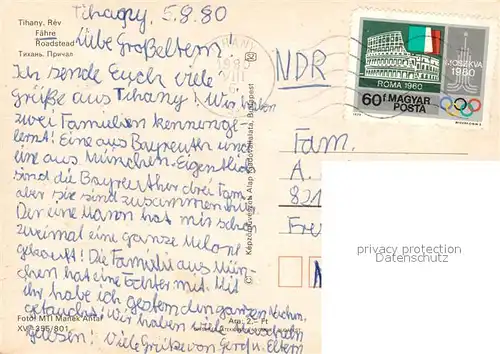 Tihany, 5.8.80
Tihany, Rév
Fähre
Roadstead
Тихань. Причал
Liebe Großeltern!
Ich sende Euch viele
Grüße aus Tihany! Wir haben
zwei Familien kennenge-
lernt! Eine aus Bayreuth und
eine aus München. Eigentlich
sind die Bayreuther drei Fam.
aber sie sind zusammen hier.
Der eine Mann hat mir schon
zweimal eine ganze Melone
gekauft! Die Familie aus Mün-
chen hat eine Tochter. Mit
ihr habe ich gestern den ganzen Nachm.
getaucht! Wir haben viel
gelesen! Viele Grüße von Gerd u. Eltern
Fotó: MTI Manek Attila
XV/355/801
Ára: 2,- Ft
Képzőművészeti Alap Kiadóvállalata, Budapest
TIHANY
NDR
ROMA 1960
MOSZKVA
1980
60f MAGYAR
POSTA
Fam.
A.
821
Fre
privacy protection
Datenschutz